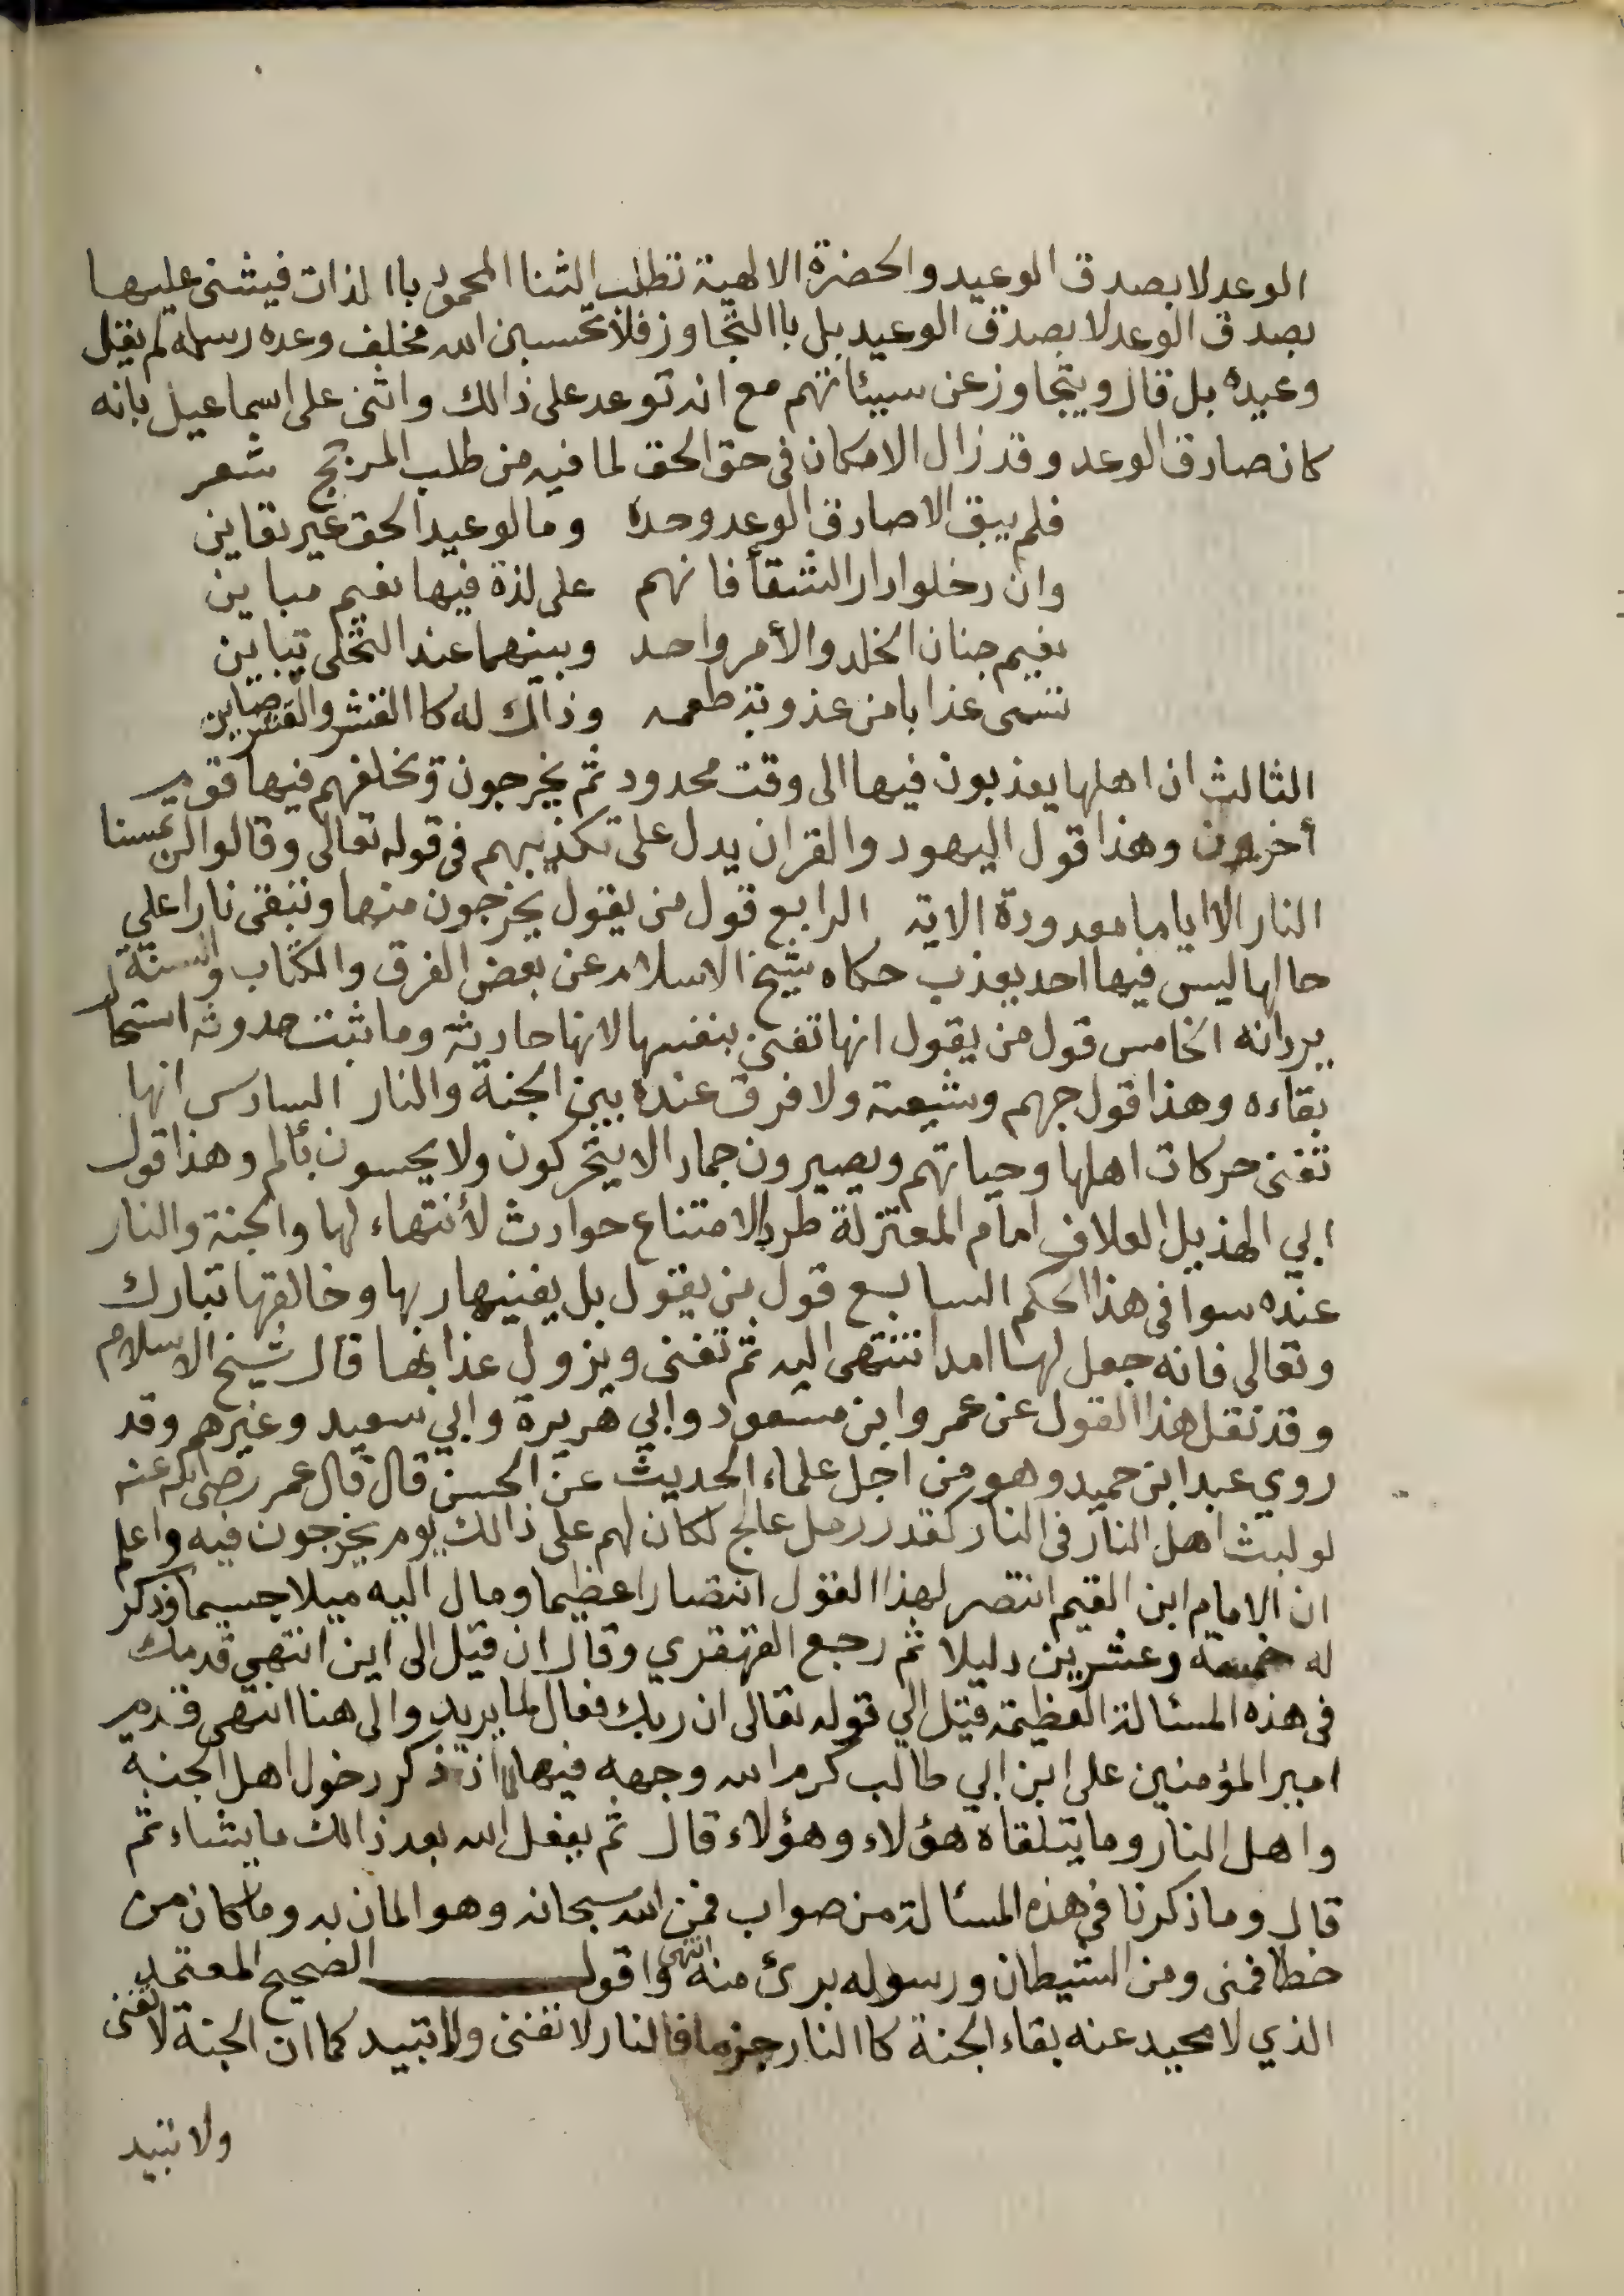 الوعد لا بصدق الوعيد والحضرة الالهية تطلب الثنا المحمود باا لذات فيثنى عليها
بصدق الوعد لا بصدق الوعيد بل باالتجاوز فلا تحسبن الله مخلف وعده رسله لم يقل
وعيده بل قال ويتجاوز عن سيئاتهم مع انه توعد على ذالك واثنى على اسماعيل بانه
كان صادق الوعد وقد زال الامكان في حق الحق لما فيه من طلب المرجح شعر
فلم يبق الا صادق الوعد وحده وما لوعيد الحق عير تعاين
وان دخلوا دار الشقأ فانهم على لذة فيها نعيم مباين
نعيم جنان الخلد والأمر واحد وبينهما عند التجلى تباين
تسمى عذابا من عذوبة طعمه وذاك له كا القشر والقشر صاين
الثالث ان اهلها يعذبون فيها الى وقت محدود ثم يخرجون وتخلفهم فيها قوم
أخرون وهذا قول اليهود والقران يدل على تكذيبهم في قوله تعالى وقالوا لن تمسنا
النار الا اياما معدودة الاية الرابع قول من يقول يخرجون منها وتبقى نارا على
حالها ليس فيها احد يعذب حكاه شيخ الاسلام عن بعض الفرق والكتاب والسنة
يردانه الخامس قول من يقول انها تفنى بنفسها لانها حادثة وما ثبت حدوثه استحال
بقاءه وهذا قول جهم وشيعته ولا فرق عنده بين الجنة والنار السادس انها
تفنى حركات اهلها وحياتهم ويصيرون جمادا لا يتحركون ولا يحسون بألم وهذا قول
ابي الهذيل العلاف امام المعتزلة طردا لامتناع حوادث لأنتهاء لها والجنة والنار
عنده سوا في هذا الحكم السابع قول من يقول بل يفنيها ربها وخالقها تبارك
وتعالى فانه جعل لها امدا تنتهى اليه ثم تفنى ويزول عذابها قال شيخ الاسلام
وقد نقل هذا القول عن عمر وابن مسعود وابي هريرة وابي سعيد وغيرهم وقد
روي عبد ابن حميد وهو من اجل علماء الحديث عن الحسن قال قال عمر رضي الله عنه
لو لبث اهل النار في النار كقدر رمل عالج لكان لهم على ذالك يوم يخرجون فيه واعلم
ان الامام ابن القيم انتصر لهذا القول انتصارا عظيما ومال اليه ميلا جسيما وذكر
له خمسة وعشرين دليلا ثم رجع القهقري وقال ان قيل الى اين انتهي قدمك
في هذه المسئالة العظيمة قيل الي قوله تعالى ان ربك فعال لما يريد والى هنا انتهى قدم
امير المؤمنين على ابن ابي طالب كرم الله وجهه فيها ذكر دخول اهل الجنة
واهل النار وما يتلقاه هؤلاء وهؤلاء قال ثم يفعل الله بعد ذالك ما يشاء ثم
قال وما ذكرنا في هذه المسئالة من صواب فمن الله سبحانه وهو المان به وما كان من
خطا فمنى ومن الشيطان ورسوله برئ منه انتهى واقول الصحيح المعتمد
الذي لا محيد عنه بقاء الجنة كا النار جزما فا لنار لا تفنى ولا تبيد كما ان الجنة لا تفنى
ولا تبيد